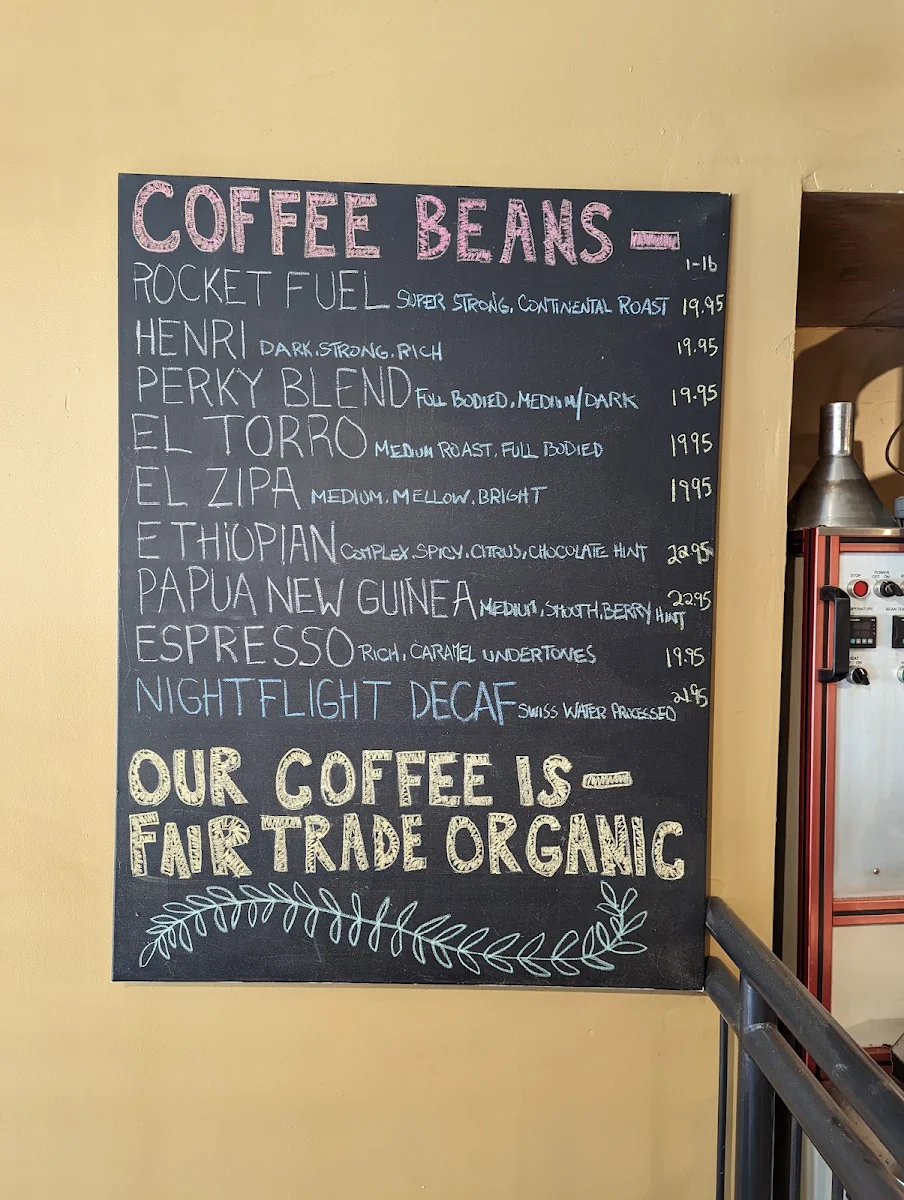 COFFEE BEANS —
1-lb
ROCKET FUEL SUPER STRONG, CONTINENTAL ROAST 19.95
HENRI DARK.STRONG.RICH 19.95
PERKY BLEND FULL BODIED, MEDIUM/DARK 19.95
EL TORRO MEDIUM ROAST, FULL BODIED 1995
EL ZIPA MEDIUM, MELLOW, BRIGHT 1995
ETHIOPIAN COMPLEX, SPICY, CITRUS, CHOCOLATE HINT 22.95
PAPUA NEW GUINEA MEDIUM, SMOOTH, BERRY HINT 22.95
ESPRESSO RICH, CARAMEL UNDERTONES 19.95
NIGHTFLIGHT DECAF SWISS WATER PROCESSED 21.95
OUR COFFEE IS —
FAIR TRADE ORGANIC
STOP
POWER
OFF ON